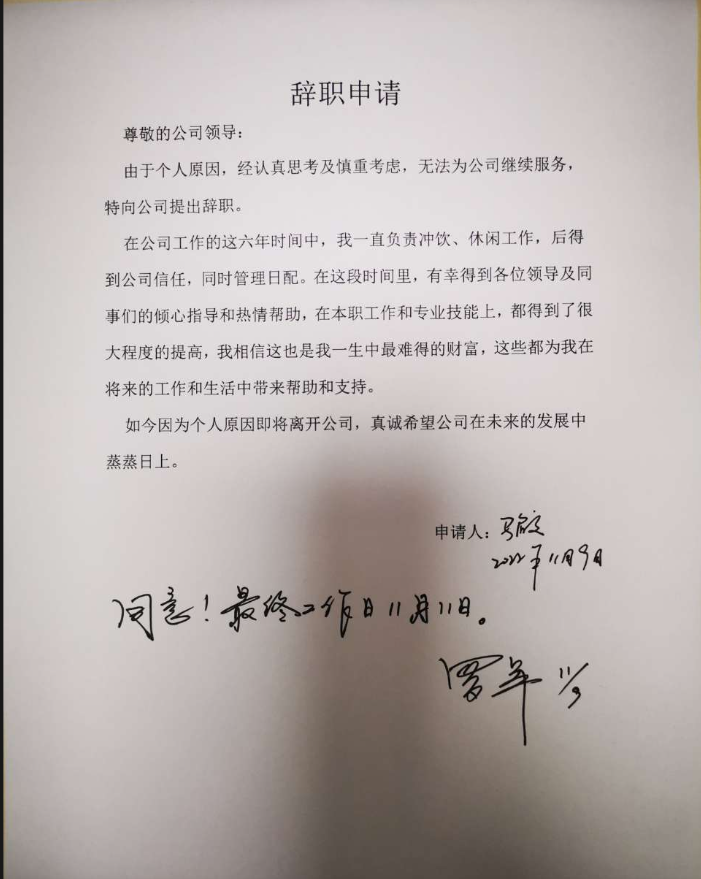 辞职申请
尊敬的公司领导：
由于个人原因，经认真思考及慎重考虑，无法为公司继续服务，
特向公司提出辞职。
在公司工作的这六年时间中，我一直负责冲饮、休闲工作，后得
到公司信任，同时管理日配。在这段时间里，有幸得到各位领导及同
事们的倾心指导和热情帮助，在本职工作和专业技能上，都得到了很
大程度的提高，我相信这也是我一生中最难得的财富，这些都为我在
将来的工作和生活中带来帮助和支持。
如今因为个人原因即将离开公司，真诚希望公司在未来的发展中
蒸蒸日上。
申请人：马
2022年11月9日
同意！最终工作日11月11日。
罗 11/9